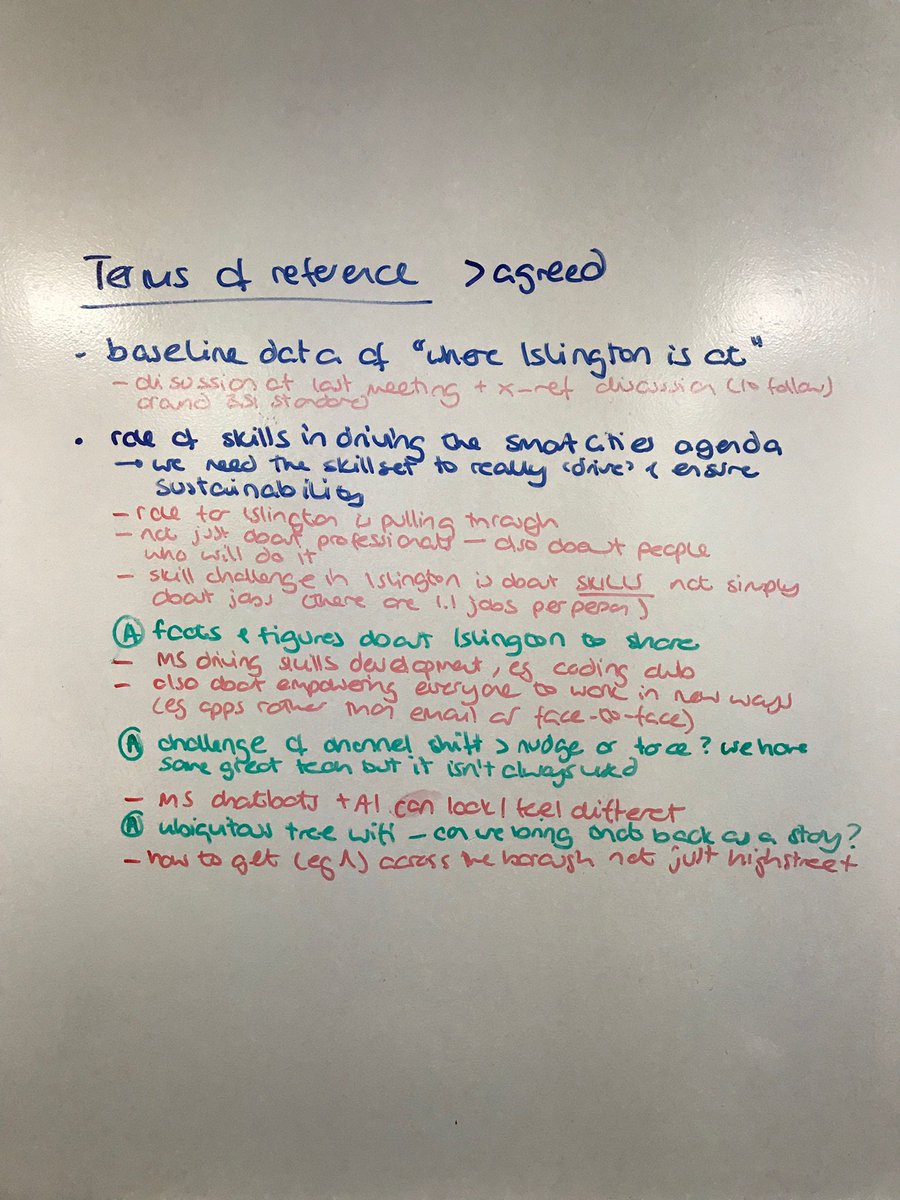 Terms of reference > agreed
- baseline data of "where Islington is at"
- disussion at last meeting + x-ref discussion (to follow)
around BSI standard
• role of skills in driving the smart cities agenda
→ we need the skillset to really 'drive' & ensure
sustainability
- role for Islington is pulling through
- not just about professionals - also about people
who will do it
- skill challenge in Islington is about SKILLS not simply
about jobs (there are 1.1 jobs per person)
Ⓐ facts & figures about Islington to share
- MS driving skills development, eg coding club
- also about empowering everyone to work in new ways
(eg apps rather than email or face-to-face)
Ⓐ challenge of channel shift > nudge or force? we have
some great tech but it isn't always used
- MS chatbots + AI can look / feel different
Ⓐ ubiquitous free wifi - can we bring back as a story?
- how to get (eg ↑) across the borough not just highstreet